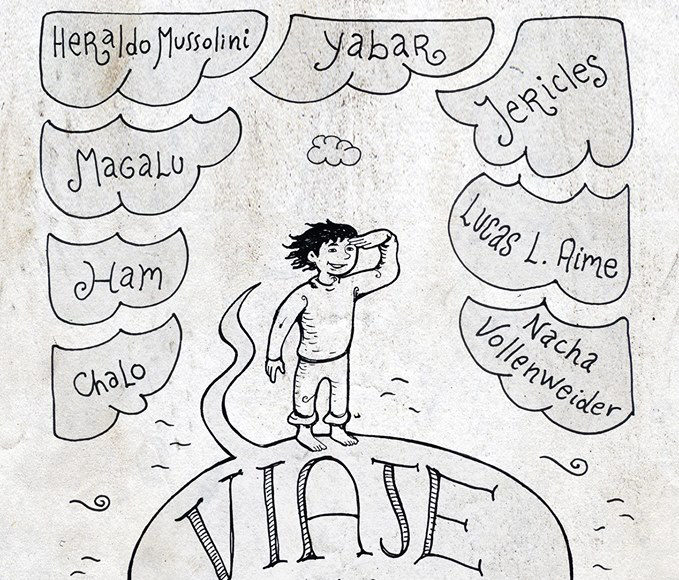 Heraldo Mussolini
Yabar
Jericles
Magalu
Lucas L. Aime
Ham
Nacha
Vollenweider
Chalo
VIAJE